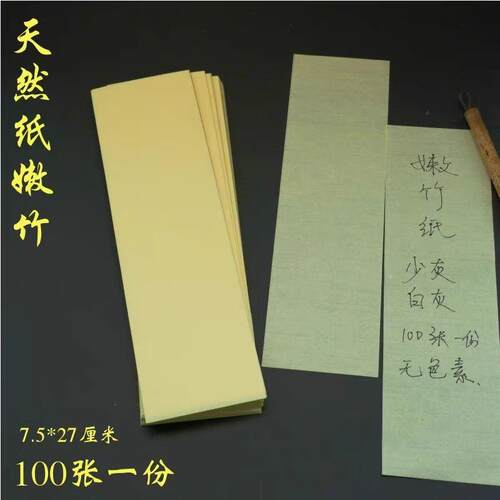 天然纸嫩竹
7.5*27厘米
100张一份
嫩竹纸
少灰
白灰
100张一份
无色素.